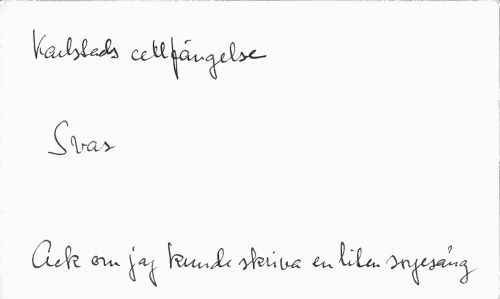 Karlstads cellfängelse
Svar
Ack om jag kunde skriva en liten sorgesång